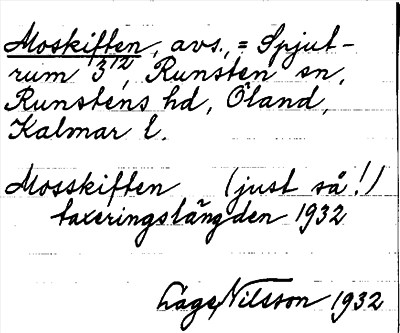 Moskiften, avs., = Spjut-
rum 3¹², Runsten sn,
Runstens hd, Öland,
Kalmar l.
Mosskiften (just så!)
taxeringslängden 1932
Låge Nilsson 1932